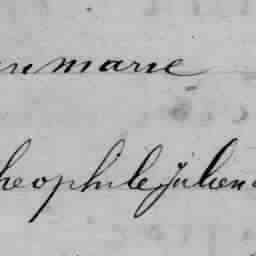 marie
heophile Julien